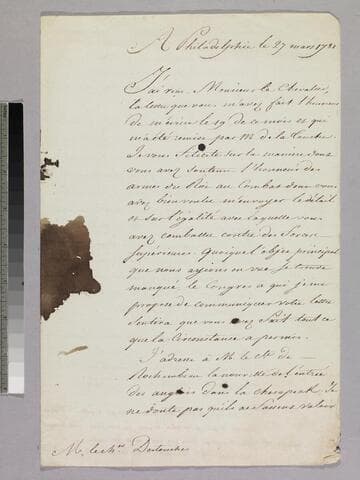 A Philadelphie le 27 mars 1781
J'ai reçu Monsieur le Chevalier,
la lettre que vous m'avez fait l'honneur
de m'écrire le 19 de ce mois et qui
m'a été remise par M. de la
Je vous félicite sur la maniere dont
vous avez soutenu l'honneur des
armes du Roi au Combat dont vous
avez bien voulu m'envoyer le détail
et sur l'égalité avec laquelle vous
avez combattu contre des forces
supérieures. Quoique l'objet principal
que nous ayions en vue se trouve
manqué le Congrès à qui je me
propose de communiquer votre lettre
sentira que vous avez fait tout ce
que la Circonstance a permis.
J'adresse à M. le Cte de
Rochambeau la nouvelle de l'entrée
des anglois dans la chesapeak. Je
ne doute pas qu'ils ne fassent valoir
M. le Chr. Destouches